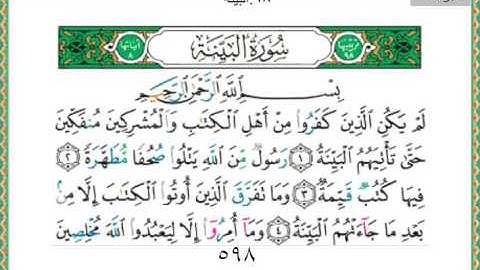 ٩٨ .البينة
ترتيبها ٩٨ سُورَةُ الْبَيِّنَةِ آياتها ٨
بِسْمِ اللَّهِ الرَّحْمَٰنِ الرَّحِيمِ
لَمْ يَكُنِ الَّذِينَ كَفَرُوا مِنْ أَهْلِ الْكِتَابِ وَالْمُشْرِكِينَ مُنفَكِّينَ
حَتَّىٰ تَأْتِيَهُمُ الْبَيِّنَةُ ۝١ رَسُولٌ مِّنَ اللَّهِ يَتْلُوا صُحُفًا مُّطَهَّرَةً ۝٢
فِيهَا كُتُبٌ قَيِّمَةٌ ۝٣ وَمَا تَفَرَّقَ الَّذِينَ أُوتُوا الْكِتَابَ إِلَّا مِن
بَعْدِ مَا جَاءَتْهُمُ الْبَيِّنَةُ ۝٤ وَمَا أُمِرُوا إِلَّا لِيَعْبُدُوا اللَّهَ مُخْلِصِينَ
٥٩٨